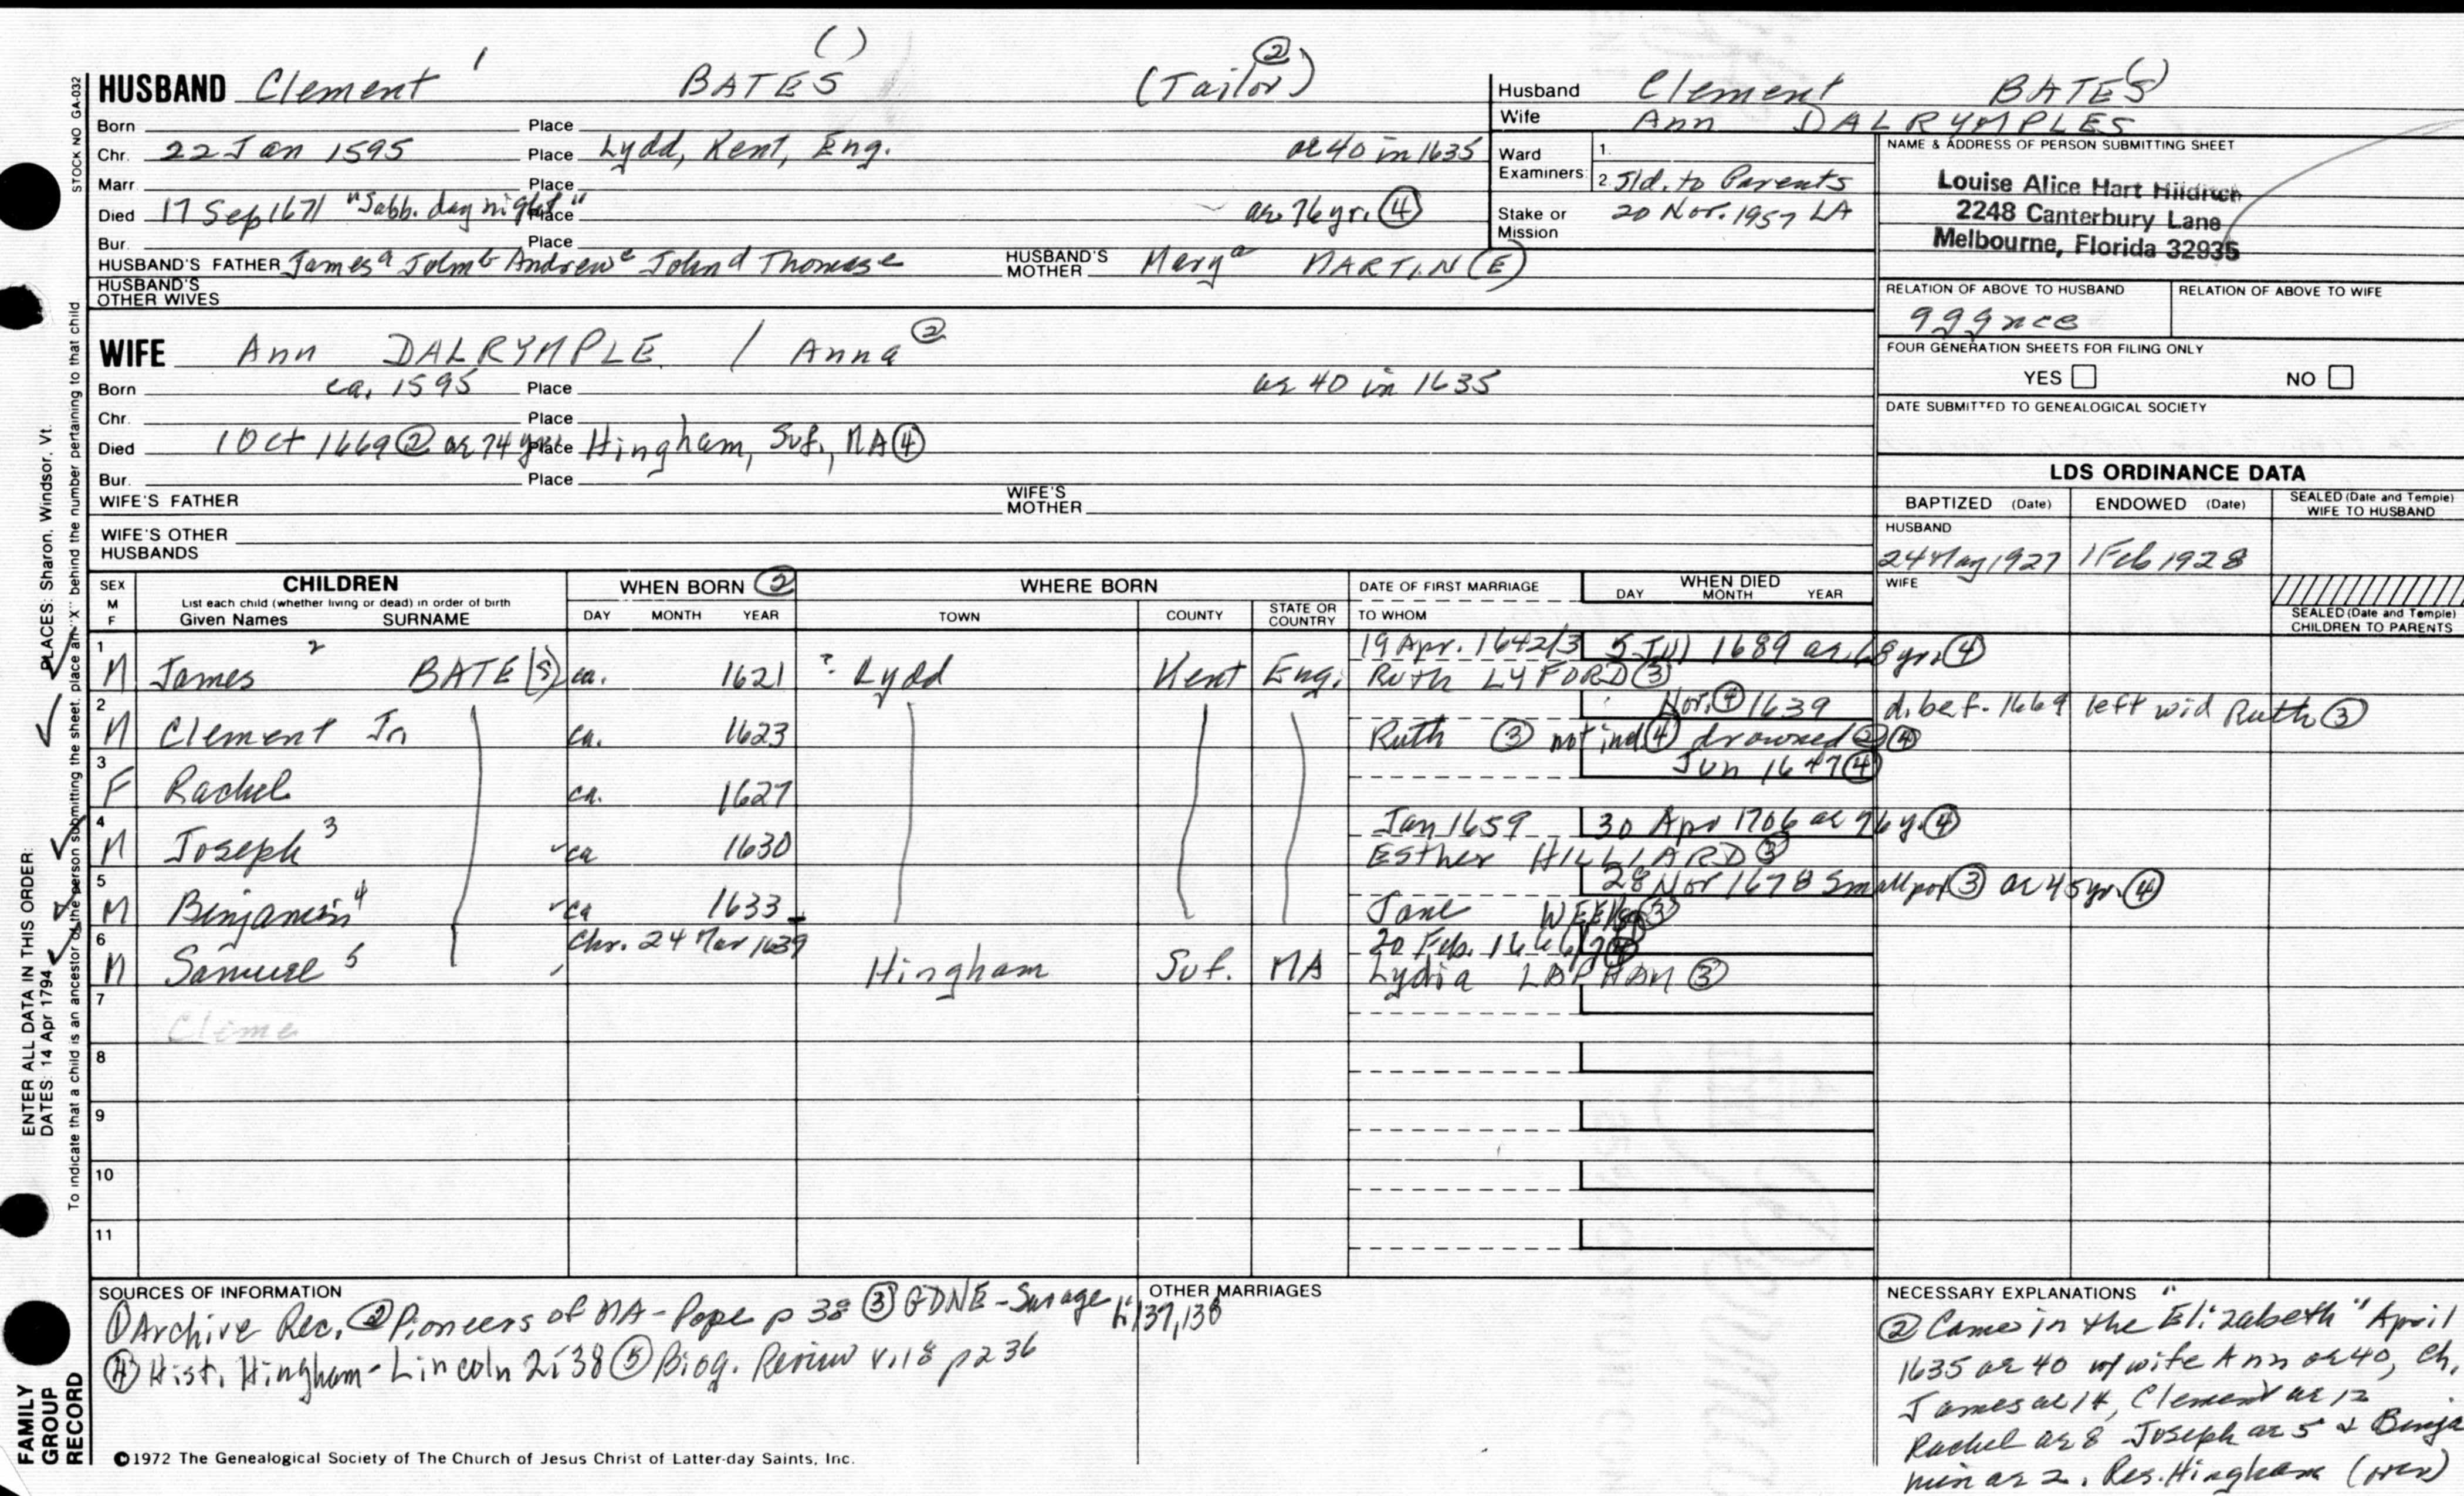 ( )
HUSBAND Clement 1 BATES (Tailor) ②
Born Place
Chr. 22 Jan 1595 Place Lydd, Kent, Eng. ae 40 in 1635
Marr. Place
Died 17 Sep 1671 "Sabb. day night" Place ae 76 yr. ④
Bur. Place
HUSBAND'S FATHER James a John b Andrew c John d Thomas e HUSBAND'S MOTHER Mary a MARTIN(E)
HUSBAND'S OTHER WIVES
Husband Clement BATE(S)
Wife Ann DALRYMPLES
Ward Examiners: 1.
2. Sld. to Parents
Stake or Mission 20 Nov. 1957 LA
NAME & ADDRESS OF PERSON SUBMITTING SHEET
Louise Alice Hart Hilditch
2248 Canterbury Lane
Melbourne, Florida 32935
RELATION OF ABOVE TO HUSBAND RELATION OF ABOVE TO WIFE
gggnce
FOUR GENERATION SHEETS FOR FILING ONLY
YES NO
DATE SUBMITTED TO GENEALOGICAL SOCIETY
WIFE Ann DALRYMPLE / Anna ②
Born ca. 1595 Place ae 40 in 1635
Chr. Place
Died 1 Oct 1669 ② ae 74 yr Place Hingham, Suf., MA ④
Bur. Place
WIFE'S FATHER WIFE'S MOTHER
WIFE'S OTHER HUSBANDS
LDS ORDINANCE DATA
BAPTIZED (Date) ENDOWED (Date) SEALED (Date and Temple) WIFE TO HUSBAND
HUSBAND
24 May 1927 1 Feb 1928
WIFE
SEALED (Date and Temple) CHILDREN TO PARENTS
SEX M F CHILDREN WHEN BORN ② WHERE BORN DATE OF FIRST MARRIAGE WHEN DIED
List each child (whether living or dead) in order of birth
Given Names SURNAME DAY MONTH YEAR TOWN COUNTY STATE OR COUNTRY TO WHOM DAY MONTH YEAR
1 19 Apr. 1642/3 5 Jul 1689 ae 68 yr. ④
M James 2 BATE(S) ca. 1621 ? Lydd Kent Eng. Ruth LYFORD ③
2 Nov. ④ 1639 d. bef. 1669 left wid Ruth ③
M Clement Jr ca. 1623 Ruth ③ not in ④ drowned ② ④
3 Jun 1647 ④
F Rachel ca. 1627
4 Jan 1659 30 Apr 1706 ae 76 y. ④
M Joseph 3 ca 1630 Esther HILLIARD ③
5 28 Nov 1678 Smallpox ③ ae 45 yr. ④
M Benjamin 4 ca 1633 Jane WEEKS ③
6 Chr. 24 Mar 1639 20 Feb. 1666/7 ④
M Samuel 5 Hingham Suf. MA Lydia LAPHAM ③
7
Cleme
8
9
10
11
SOURCES OF INFORMATION
① Archive Rec. ② Pioneers of MA - Pope p 38 ③ GDNE - Savage 1:137,138
④ Hist. Hingham - Lincoln 2:38 ⑤ Biog. Review v.18 p236
OTHER MARRIAGES
NECESSARY EXPLANATIONS
② Came in the "Elizabeth" April
1635 ae 40 w/ wife Ann ae 40, ch.
James ae 14, Clement ae 12
Rachel ae 8 Joseph ae 5 & Benja
min ae 2. Res. Hingham (over)
©1972 The Genealogical Society of The Church of Jesus Christ of Latter-day Saints, Inc.
FAMILY GROUP RECORD
ENTER ALL DATA IN THIS ORDER:
DATES: 14 Apr 1794 PLACES: Sharon, Windsor, Vt.
To indicate that a child is an ancestor of the person submitting the sheet, place an "X" behind the number pertaining to that child
STOCK NO GA-032